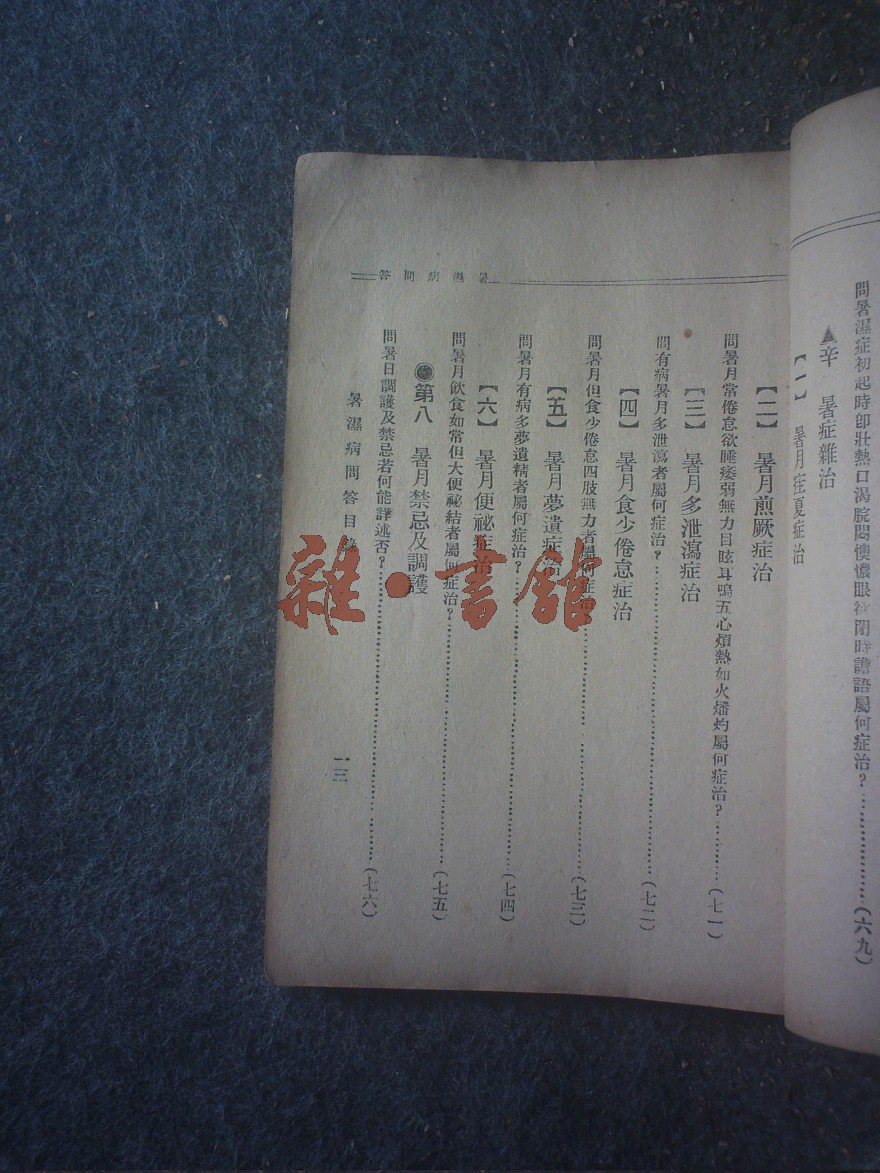 問暑濕症初起時卽壯熱口渴脘悶懊憹眼欲閉時譫語屬何症治?……(六九)
▲辛 暑症雜治
【一】 暑月疰夏症治
答問病濕暑
【二】 暑月煎厥症治
問暑月常倦怠欲睡痿弱無力目眩耳鳴五心煩熱如火燔灼屬何症治?……(七一)
【三】 暑月多泄瀉症治
問有病暑月多泄瀉者屬何症治?……(七二)
【四】 暑月食少倦怠症治
問暑月但食少倦怠四肢無力者屬何症治……(七三)
【五】 暑月夢遺症治
問暑月有病多夢遺精者屬何症治?……(七四)
【六】 暑月便祕症治
問暑月飲食如常但大便祕結者屬何症治?……(七五)
第八 暑月禁忌及調護
問暑日調護及禁忌若何能詳述否?……(七六)
暑濕病問答目錄 一三
雜·書館